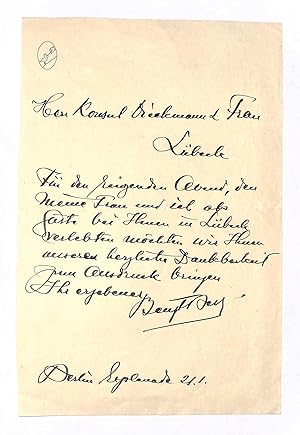 Herr Konsul Dieckmann & Frau
Lübeck
Für den reizenden Abend, den
meine Frau und ich als
Gäste bei Ihnen in Lübeck
verlebten möchten wir Ihnen
unseren herzlichen Dankbarkeit
zum Ausdruck bringen
Ihr ergebener
Berlin Esplanade 21.1.